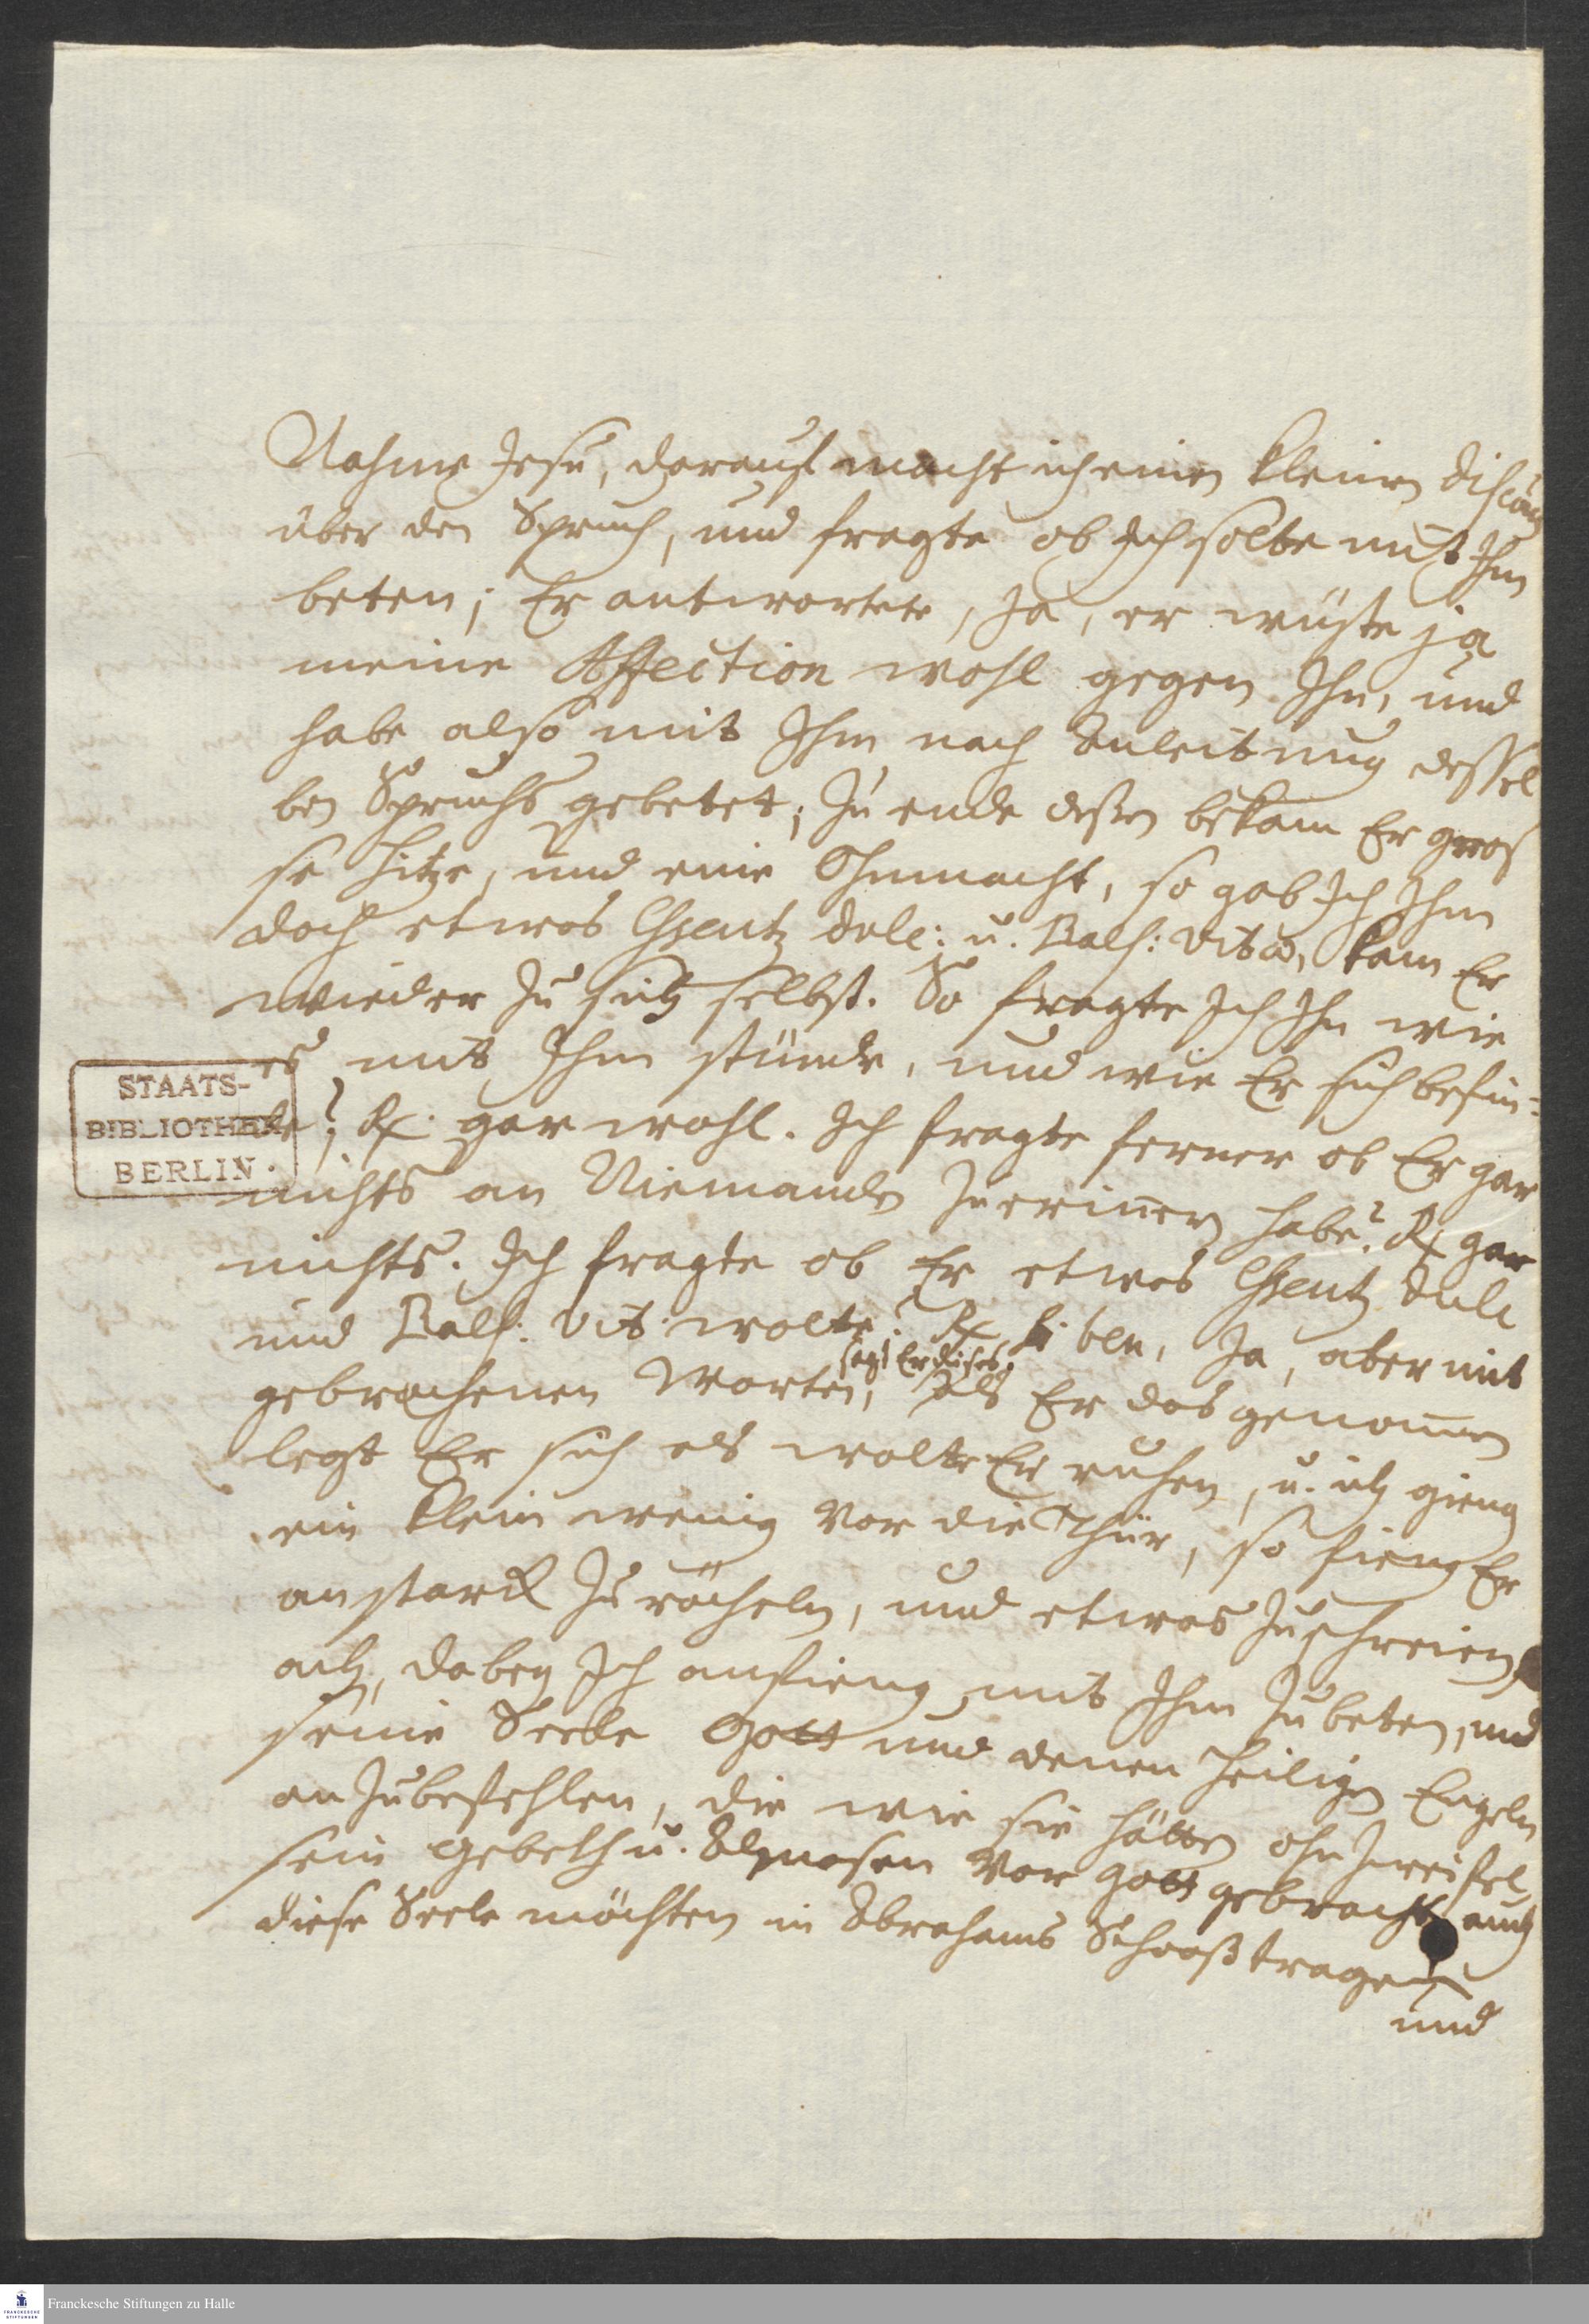 Nahme Jesu, darauf macht ich einen kleinen discours
über den Spruch, und fragte ob Ich solte mit Ihm
beten; Er antwortete, Ja, er wüste ja
meine Affection wohl gegen Ihn, und
habe also mit Ihm nach Anleitung dessel
ben Spruchs gebetet; Zu ende deßen bekam Er gros
se Hitze, und eine Ohnmacht, so gab Ich Ihm
doch etwas Essentz dulc: u. Bals: Vitæ, kam Er
wieder zu sich selbst. So fragte Ich Ihn wie
es mit Ihm stünde, und wie Er sich befin-
de? Rx. gar wohl. Ich fragte ferner ob Er gar
nichts an Niemanden zuerinnern habe? Rx gar
nichts. Ich fragte ob Er etwas Essentz dulc
und Bals: Vit: wolte? Rx ben, Ja, aber mit
sagt Er dises,
gebrochenen Worten, Als Er das genom̄en
legt Er sich als wolte Er ruhen, u. ich gieng
ein klein wenig vor die Thür, so fieng Er
an starck zu röcheln, und etwas zuschreien
ach, dabey Ich anfieng mit Ihm zu beten, und
seine Seele Gott und denen heiligen Engeln
anzubefehlen, die wie sie hätten ohn zweifel
sein Gebeth u. Almosen vor Gott gebracht, auch
diese Seele möchten in Abrahams Schooß tragen
und
STAATS-
BIBLIOTHEK
BERLIN.
Franckesche Stiftungen zu Halle